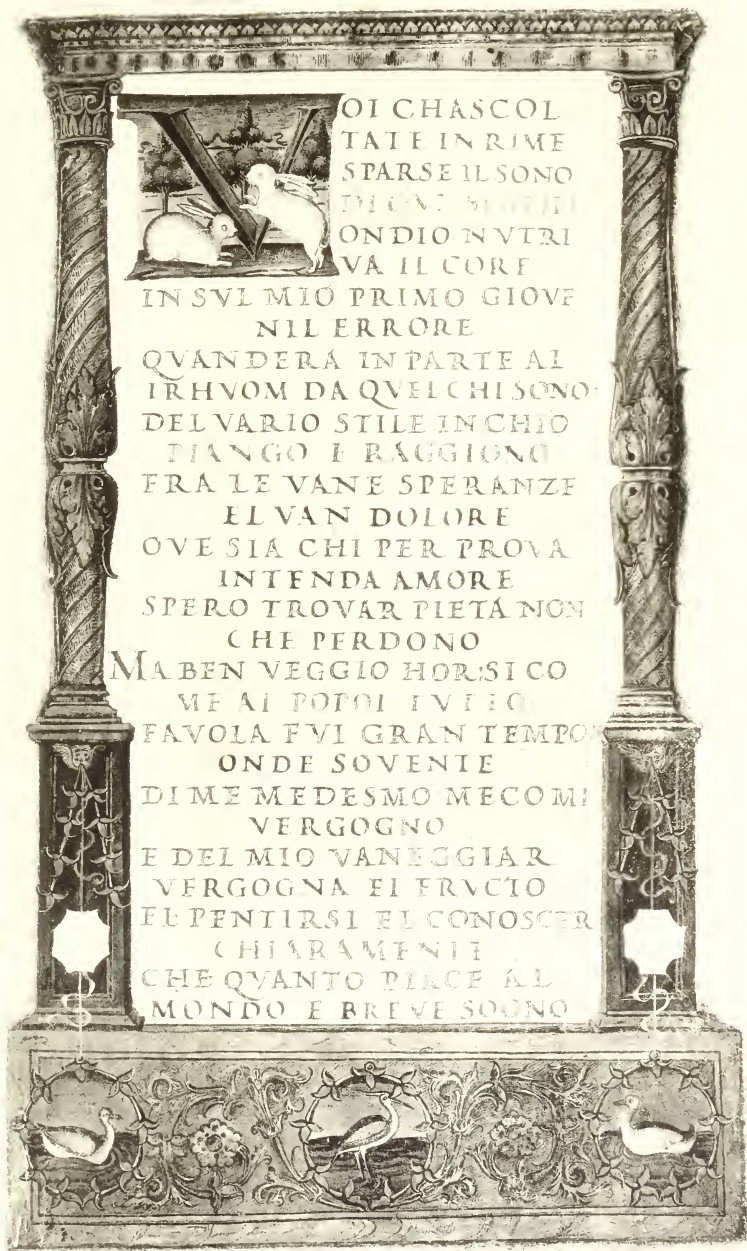 VOI CHASCOL
TATE IN RIME
SPARSE IL SONO
DI
ONDIO NVTRI
VA IL CORE
IN SVL MIO PRIMO GIOVE
NIL ERRORE
QVANDERA IN PARTE AL
IRHVOM DA QVEL CHI SONO
DEL VARIO STILE IN CHIO
PIANGO E RAGGIONO
FRA LE VANE SPERANZE
EL VAN DOLORE
OVE SIA CHI PER PROVA
INTENDA AMORE
SPERO TROVAR PIETA NON
CHE PERDONO
MA BEN VEGGIO HOR:SI CO
ME AL POPOL TVTTO
FAVOLA FVI GRAN TEMPO
ONDE SOVENTE
DI ME MEDESMO MECO MI
VERGOGNO
E DEL MIO VANEGGIAR
VERGOGNA EL FRVCTO
EL PENTIRSI EL CONOSCER
CHIARAMENTE
CHE QVANTO PIACE AL
MONDO E BREVE SOGNO